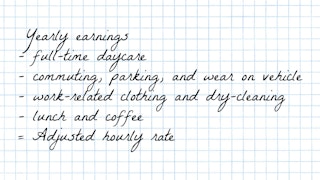 Yearly earnings
- full-time daycare
- commuting, parking, and wear on vehicle
- work-related clothing and dry-cleaning
- lunch and coffee
= Adjusted hourly rate